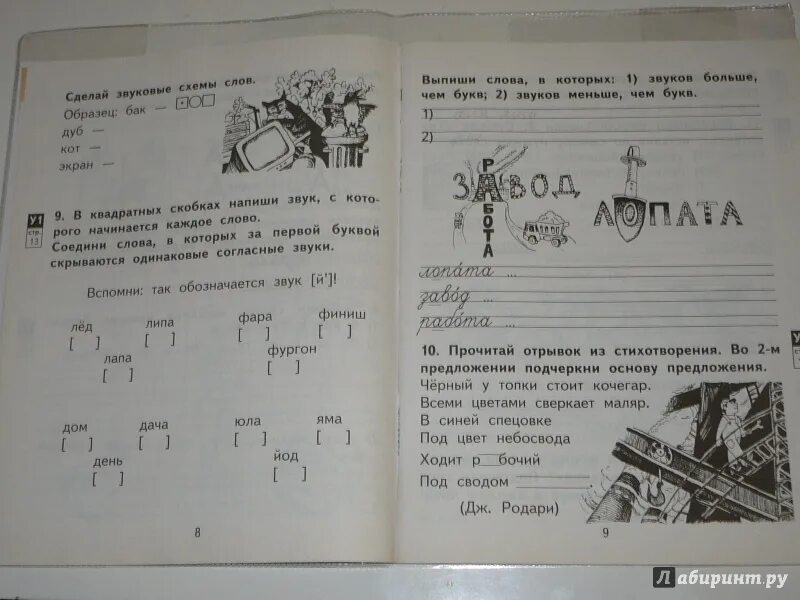 Сделай звуковые схемы слов.
Образец: бак —
дуб —
кот —
экран —
У1
стр.
13
9. В квадратных скобках напиши звук, с кото-
рого начинается каждое слово.
Соедини слова, в которых за первой буквой
скрываются одинаковые согласные звуки.
Вспомни: так обозначается звук [й']!
лёд липа фара финиш
[ ] [ ] [ ] [ ]
лапа фургон
[ ] [ ]
дом дача юла яма
[ ] [ ] [ ] [ ]
день йод
[ ] [ ]
8
Выпиши слова, в которых: 1) звуков больше,
чем букв; 2) звуков меньше, чем букв.
1)
2)
ЗАВОД
РАБОТА
ЛОПАТА
лопа́та ...
заво́д ...
рабо́та ...
10. Прочитай отрывок из стихотворения. Во 2-м
предложении подчеркни основу предложения.
Чёрный у топки стоит кочегар.
Всеми цветами сверкает маляр.
В синей спецовке
Под цвет небосвода
Ходит р__бочий
Под сводом
(Дж. Родари)
9
Лабиринт.ру